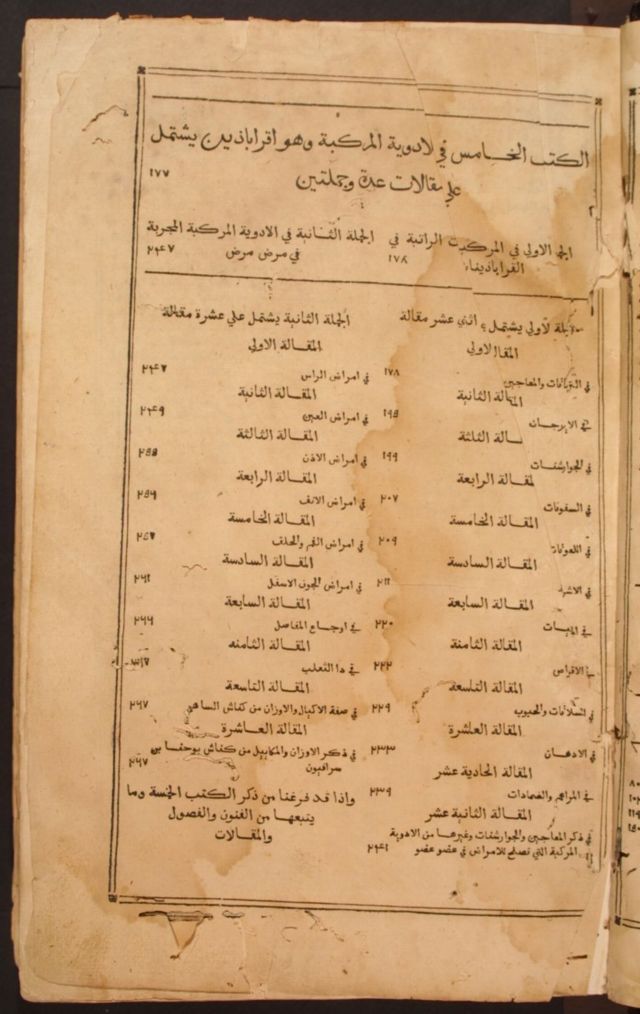 الكتب الخامس في لادوية المركبة وهو اقراباذين يشتمل
علي مقالات عدة وجملتين ١٧٧
الاولي في المركبت الراتبة في
القراباذينات ١٧٨
الجملة الثانية في الادوية المركبة المجربة
في مرض مرض ٢٤٧
لاولي يشتمل اثني عشر مقالة
المقال لاولي
في الترياقات والمعاجين ١٧٨
المقالة الثانية
في الايرجات ١٩٥
ـالة الثلثة
في الجوارشنات ١٩٩
لمقالة الرابعة
في السفوفات ٢٠٧
المقالة الخامسة
في اللعوقات ٢٠٩
المقالة السادسة
في الاشربة ٢١١
المقالة السابعة
في المربيات ٢٢٠
المقالة الثامنة
الاقراص ٢٢٢
المقالة التاسعة
في السلاقات والحبوب ٢٢٩
المقالة العاشرة
في الادهان ٢٣٣
المقالة الحادية عشر
في المراهم والضمادات ٢٣٩
المقالة الثانية عشر
في ذكر المعاجين والجوارشنات وغيرها من الادوية
المركبة التي تصلح للامراض في عضو عضو ٢٤١
الجملة الثانية يشتمل علي عشرة مقالة
المقالة الاولي
في امراض الراس ٢٤٧
المقالة الثانية
في امراض العين ٢٤٩
المقالة الثالثة
في امراض الاذن ٢٥٥
المقالة الرابعة
في امراض الانف ٢٥٦
المقالة الخامسة
في امراض الفم والحلف ٢٥٧
المقالة السادسة
في امراض الجوف الاسفل ٢٦١
المقالة السابعة
في اوجاع المفاصل ٢٦٦
المقالة الثامنه
في دا الثعلب
المقالة التاسعة
في صفة الاكيال والاوزان من كناش الساهر ٢٦٧
المقالة العاشرة
في ذكر الاوزان والمكاييل من كناش يوحنا بن
سرافيون ٢٦٧
واذا قد فرغنا من ذكر الكتب الخمسة وما
يتبعها من الفنون والفصول
والمقالات